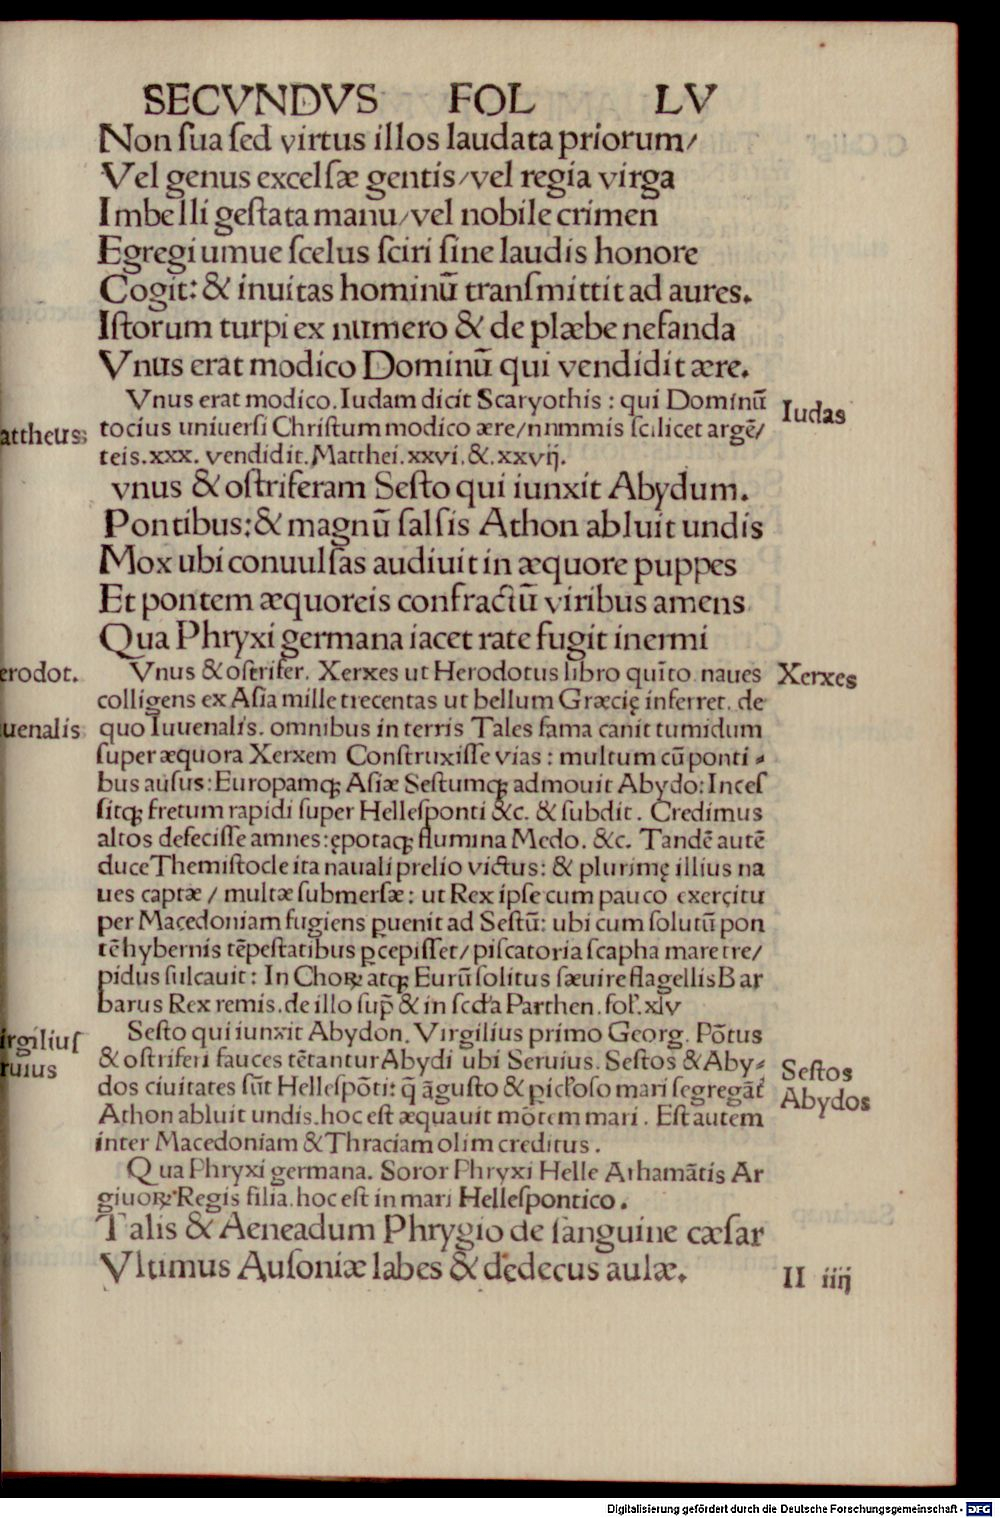 SECVNDVS FOL LV
Non ſua ſed virtus illos laudata priorum/
Vel genus excelſæ gentis/vel regia virga
Imbelli geſtata manu/vel nobile crimen
Egregiumue ſcelus ſciri ſine laudis honore
Cogit: & inuitas hominū tranſmittit ad aures.
Iſtorum turpi ex numero & de plæbe nefanda
Vnus erat modico Dominū qui vendidit ære.
Vnus erat modico. Iudam dicit Scaryothis : qui Dominū
Iudas
attheus;
tocius uniuerſi Chriſtum modico ære/nummis ſcilicet argē/
teis.xxx. vendidit. Matthei.xxvi.&.xxvij.
vnus & oſtriferam Seſto qui iunxit Abydum.
Pontibus:& magnū ſalſis Athon abluit undis
Mox ubi conuulſas audiuit in æquore puppes
Et pontem æquoreis confractū viribus amens
Qua Phryxi germana iacet rate fugit inermi
erodot.
Vnus & oſtrifer. Xerxes ut Herodotus libro quīto naues
Xerxes
colligens ex Aſia mille trecentas ut bellum Græcię inferret. de
uenalis
quo Iuuenalis. omnibus in terris Tales fama canit tumidum
ſuper æquora Xerxem Conſtruxiſſe vias : multum cū ponti⸗
bus auſus: Europamꝗ Aſiæ Seſtumꝗ admouit Abydo: Inceſ
ſitꝗ fretum rapidi ſuper Helleſponti &c. & ſubdit. Credimus
altos defeciſſe amnes: ępotaꝗ flumina Medo. &c. Tandē autē
duce Themiſtocle ita nauali prelio victus: & plurimę illius na
ues captæ / multæ ſubmerſæ: ut Rex ipſe cum pauco exercitu
per Macedoniam fugiens ꝑuenit ad Seſtū: ubi cum ſolutū pon
tē hybernis tēpeſtatibus ꝑcepiſſet/ piſcatoria ſcapha mare tre/
pidus ſulcauit: In Choꝝ atꝗ Eurū ſolitus ſæuire flagellis Bar
barus Rex remis. de illo ſup̄ & in ſcd̓a Parthen. fol̓.xlv
irgiliuſ
Seſto qui iunxit Abydon. Virgilius primo Georg. Pōtus
ruius
& oſtriferi fauces tētantur Abydi ubi Seruius. Seſtos & Aby⸗
Seſtos
dos ciuitates ſūt Helleſpōti: q̄ āguſto & ꝑicl̓oſo mari ſegregāt̓
Abydos
Athon abluit undis. hoc eſt æquauit mōtem mari. Eſt autem
inter Macedoniam & Thraciam olim creditus.
Qua Phryxi germana. Soror Phryxi Helle Athamātis Ar
giuoꝝ Regis filia. hoc eſt in mari Helleſpontico.
Talis & Aeneadum Phrygio de ſanguine cæſar
Vltimus Auſoniæ labes & dedecus aulæ.
II iiij
Digitalisierung gefördert durch die Deutsche Forschungsgemeinschaft - DFG